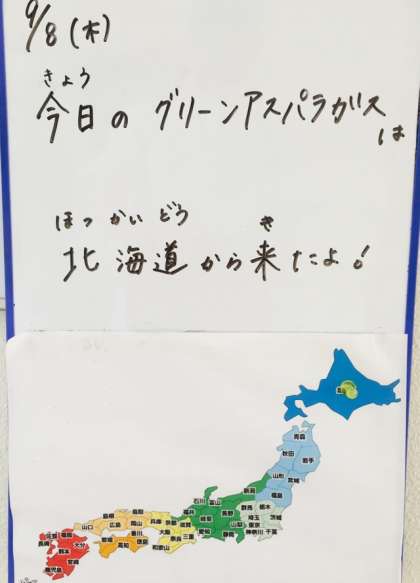 9/8(木)
きょう
今日の グリーンアスパラガス
は
ほっ かい どう き
北海道から来たよ!
青森
秋田 岩手
山形 宮城
福島
新潟
石川 富山
福井 岐阜 長野 群馬 栃木
埼玉 茨城
山梨 東京
愛知 静岡 神奈川 千葉
島根 鳥取
山口 広島 岡山 兵庫 京都 滋賀
香川 大阪 奈良 三重
愛媛 徳島 和歌山
高知
佐賀 福岡
長崎 大分
熊本
宮崎
鹿児島